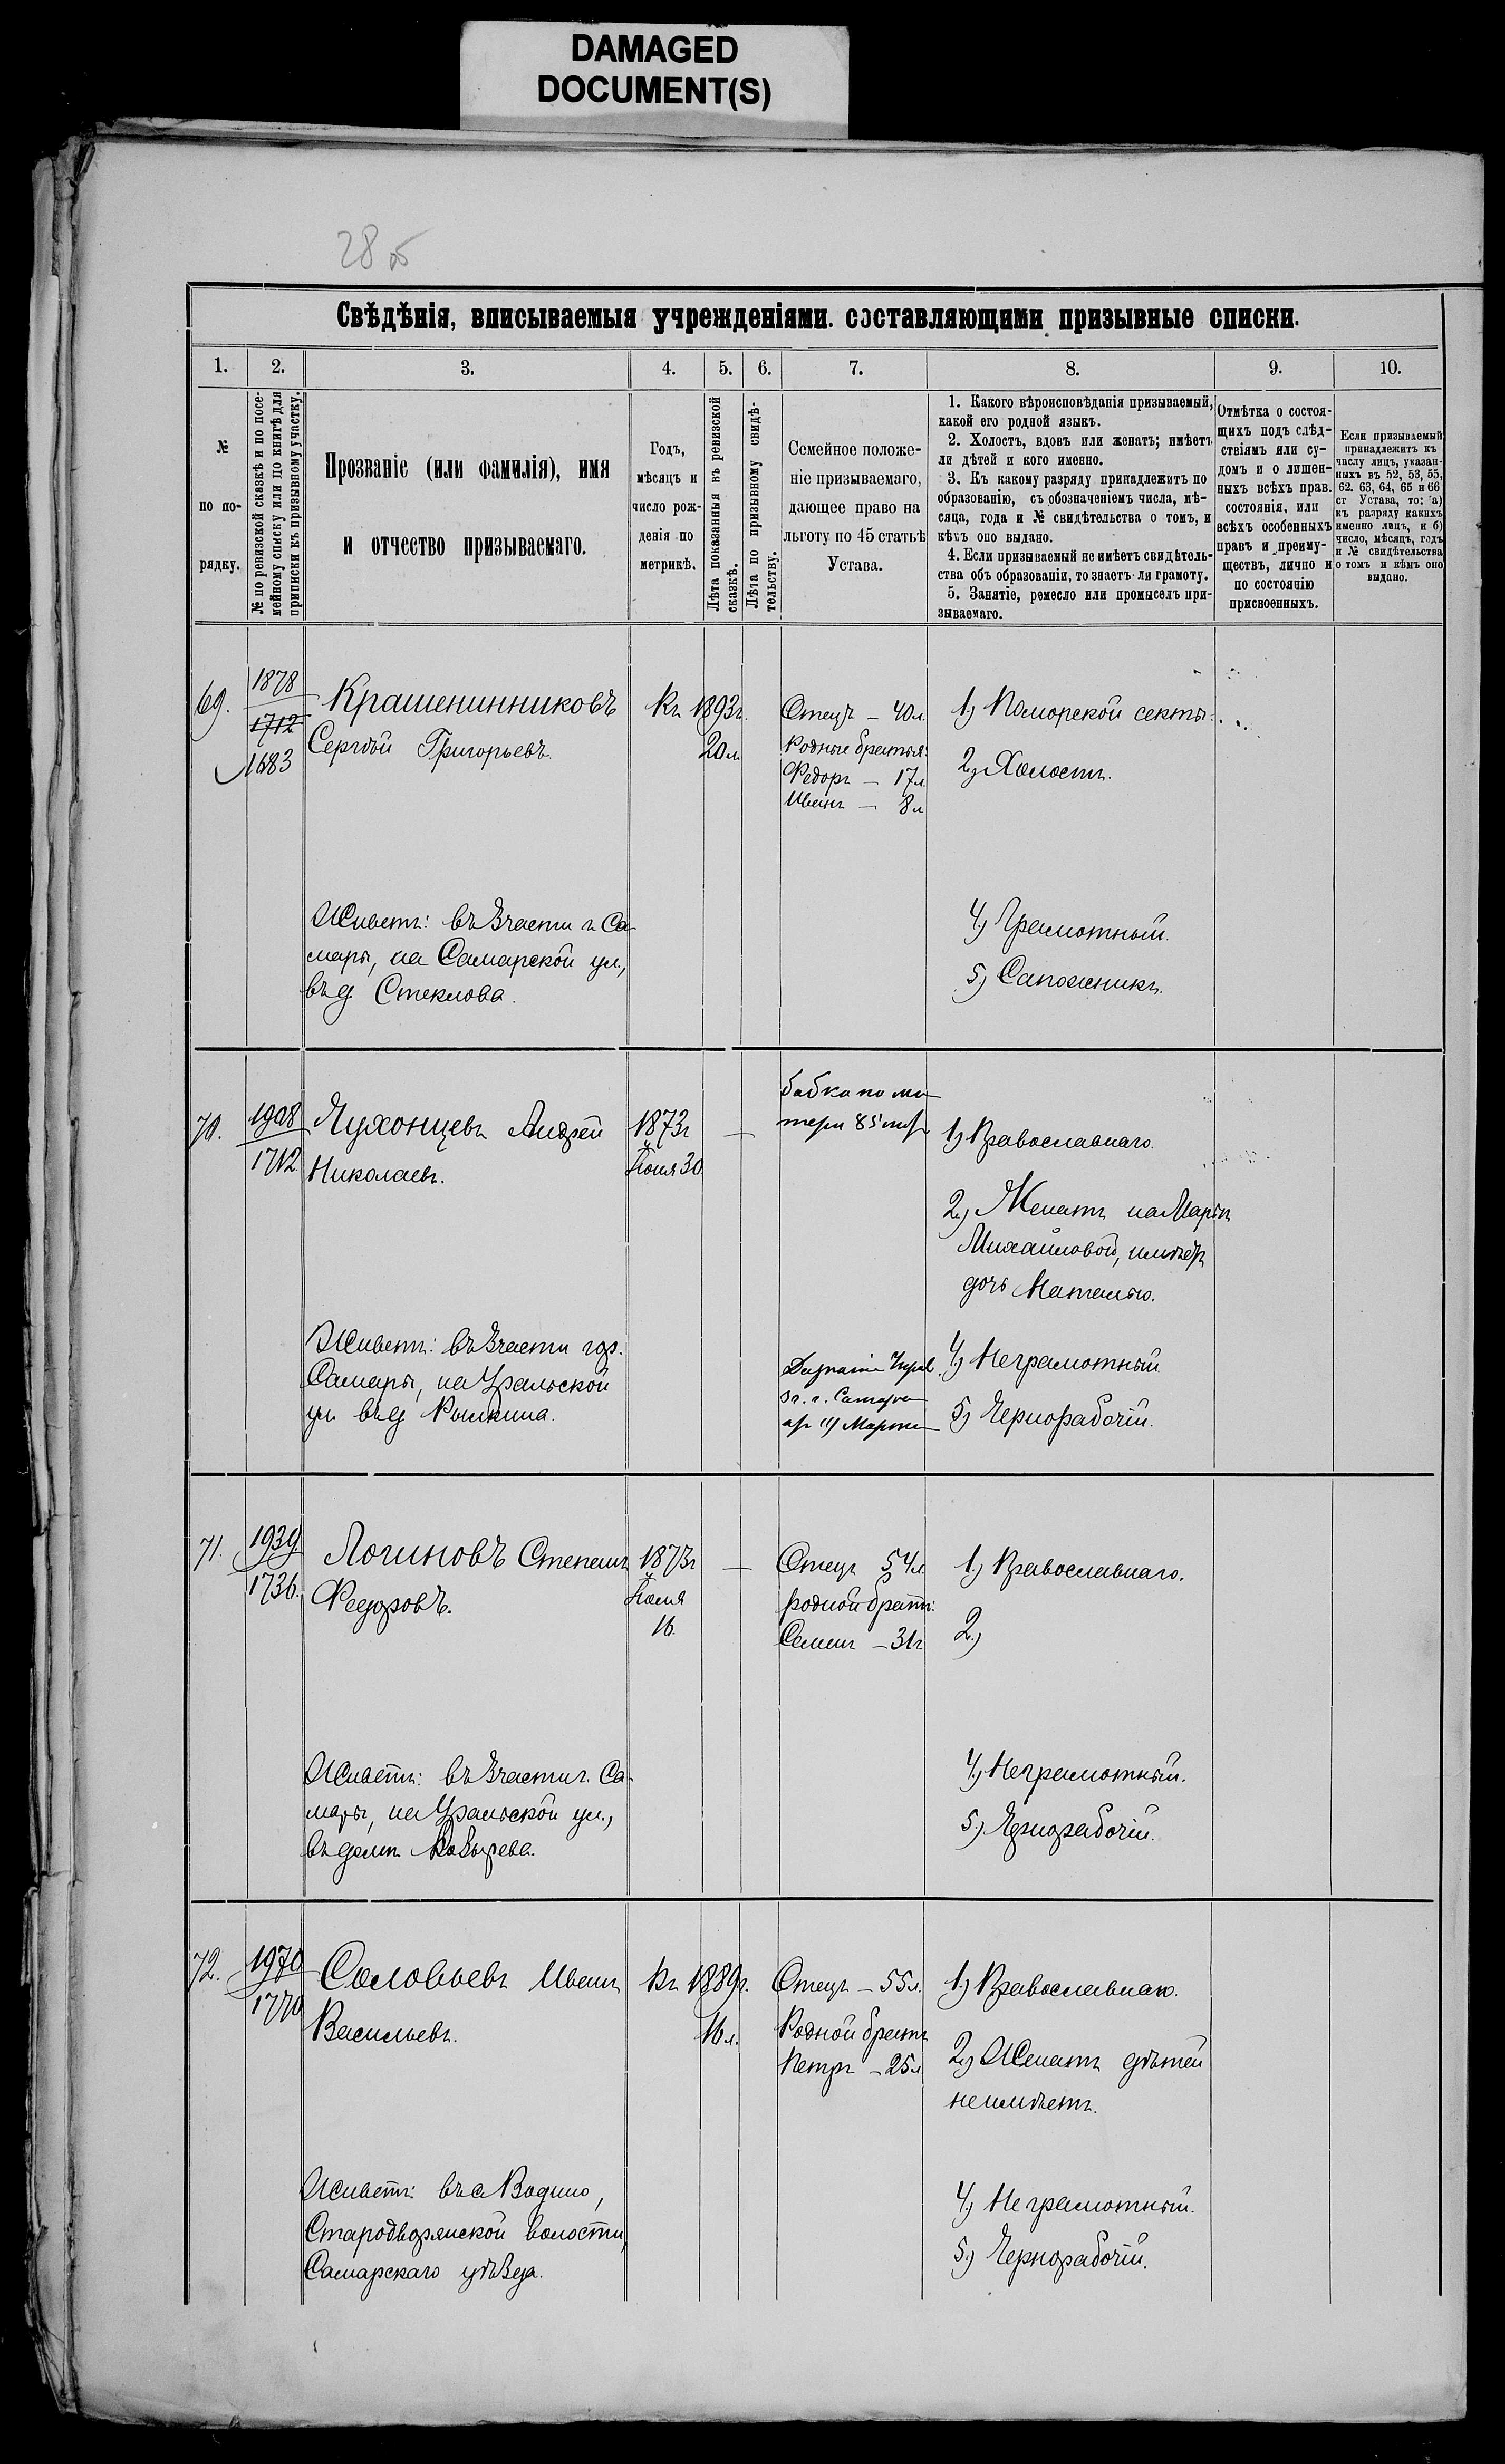 DAMAGED
DOCUMENT(S)
28 об
Свѣдѣнія, вписываемыя учрежденіями. составляющими призывные списки.
1.
2.
3.
4.
5.
6.
7.
8.
9.
10.
№
по по-
рядку.
№ по ревизской сказкѣ и по посе-
мейному списку или по книгѣ для
приписки къ призывному участку.
Прозваніе (или фамилія), имя
и отчество призываемаго.
Годъ,
мѣсяцъ и
число рож-
денія по
метрикѣ.
Лѣта показанныя къ ревизской
сказкѣ.
Лѣта по призывному свидѣ-
тельству.
Семейное положе-
ніе призываемаго,
дающее право на
льготу по 45 статьѣ
Устава.
1. Какого вѣроисповѣданія призываемый,
какой его родной языкъ.
2. Холостъ, вдовъ или женатъ; имѣетъ
ли дѣтей и кого именно.
3. Къ какому разряду принадлежитъ по
образованію, съ обозначеніемъ числа, мѣ-
сяца, года и № свидѣтельства о томъ, и
кѣмъ оно выдано.
4. Если призываемый не имѣетъ свидѣтель-
ства объ образованіи, то знаетъ ли грамоту.
5. Занятіе, ремесло или промыселъ при-
зываемаго.
Отмѣтка о состоя-
щихъ подъ слѣд-
ствіямъ или су-
домъ и о лишен-
ныхъ всѣхъ прав.
состоянія, или
всѣхъ особенныхъ
правъ и преиму-
ществъ, лично и
по состоянію
присвоенныхъ.
Если призываемый
принадлежитъ къ
числу лицъ, указан-
ныхъ въ 52, 53, 55,
62. 63, 64, 65 и 66
ст Устава, то: а)
къ разряду какихъ
именно лицъ, и б)
число, мѣсяцъ, годъ
и № свидѣтельства
о томъ и кѣмъ оно
выдано.
69.
1878
1712
1683
Крашенинниковъ
Сергѣй Григорьевъ.
Къ 1893г.
20 л.
Отецъ – 40 л.
Родные братья:
Федоръ – 17 л.
Иванъ – 8 л
1) Поморской секты.
2) Холостъ.
Живетъ: въ 3 части г. Са-
мары, на Самарской ул.,
въ д Стеклова.
4) Грамотный.
5) Сапожникъ.
70.
1908
1712
Чухонцевъ Андрей
Николаевъ.
1873г
Іюня 30
бабка по ма
тери 85 лѣтъ
1) Православнаго.
2) Женатъ на Марьѣ
Михайловой, имѣетъ
дочь Наталью.
Живетъ: въ 3 части гор.
Самары, на Уральской
ул. въ д Рыпкина.
Самары
4) Неграмотный.
5) Чернорабочій.
71.
1939
1736.
Логиновъ Степанъ
Федоровъ.
1873г
Іюля
16.
Отецъ 54 л.
родной братъ:
Семенъ – 31 г
1) Православнаго.
2)
Живетъ: въ 3 части г. Са-
мары, на Уральской ул.,
въ домѣ Козырева.
4) Неграмотный.
5) Чернорабочій.
72.
1970
1770
Соловьевъ Иванъ
Васильевъ.
Къ 1889г.
16 л.
Отецъ – 55 л.
Родной братъ
Петръ – 25 л
1) Православнаго.
2) Женатъ дѣтей
не имѣетъ.
Живетъ: въ с Водино,
Стародворянской волости,
Самарскаго уѣзда.
4) Неграмотный.
5) Чернорабочій.